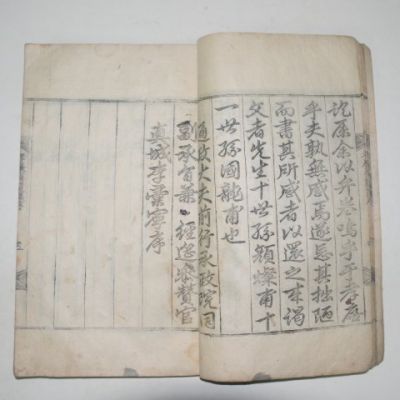 余以弁卷嗚乎
乎夫孰無感焉遂忘其拙陋
而書其所感者以還之來謁
文者先生十世孫穎燦甫十
一世孫國龍甫也
通政大夫前行承政院同
副承旨兼 經筵參贊官
真城李彙寧序